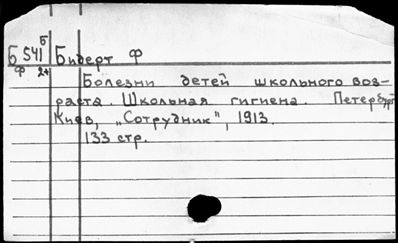 Б 541 б Бидерт Ф
Ф 2+
Болезни детей школьного воз-
раста. Школьная гигиена. Петербург
Киев, „Сотрудник", 1913.
133 стр.